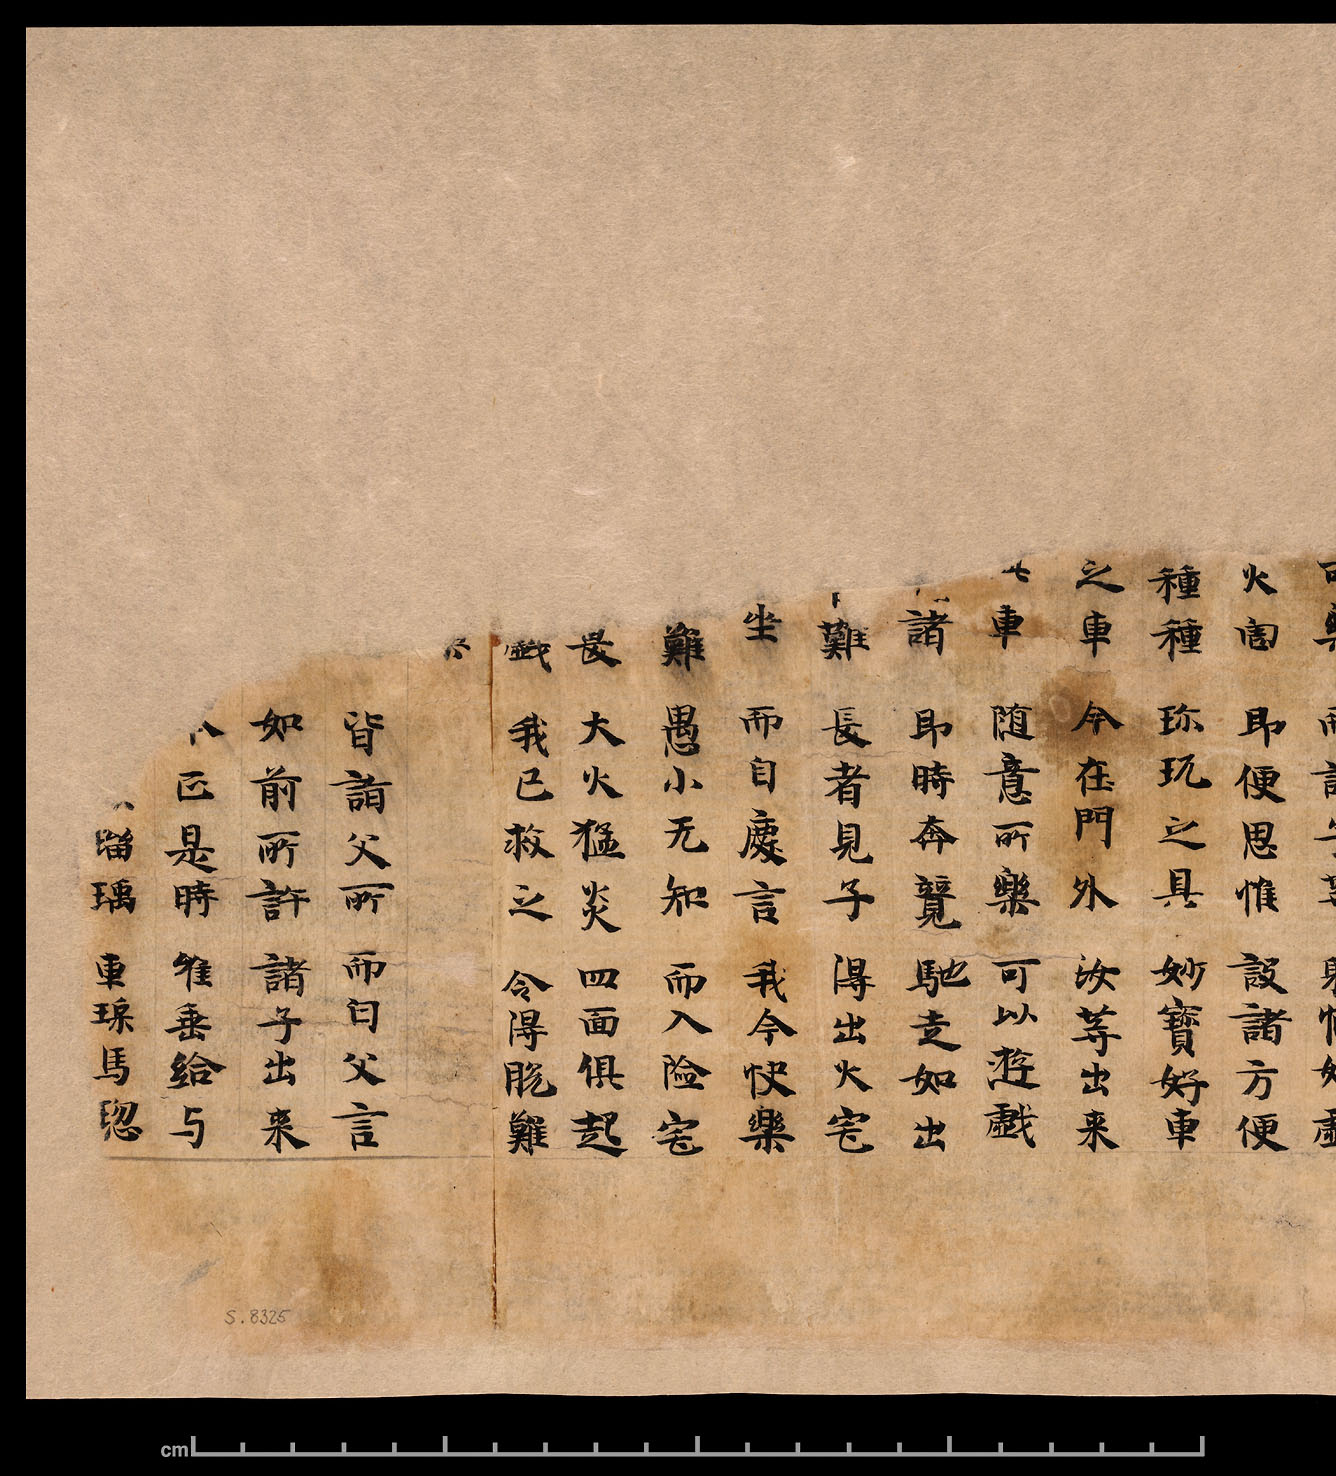 火害 即便思惟 設諸方便
種種 珎玩之具 妙寶好車
之車 今在門外 汝等出来
車 随意所樂 可以遊戲
諸 即時奔競 馳走如出
難 長者見子 得出火宅
坐 而自慶言 我今快樂
難 愚小无知 而入險宅
畏 大火猛炎 四面俱起
戲 我已救之 令得脫難
皆詣父所 而白父言
如前所許 諸子出来
正是時 唯垂給与
瑠璃 車璖馬瑙
S.8325
cm